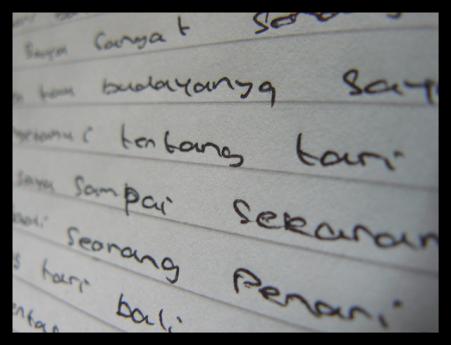 saya sangat
budayanya say
tentang tari
saya sampai sekaran
seorang penari
tari bali